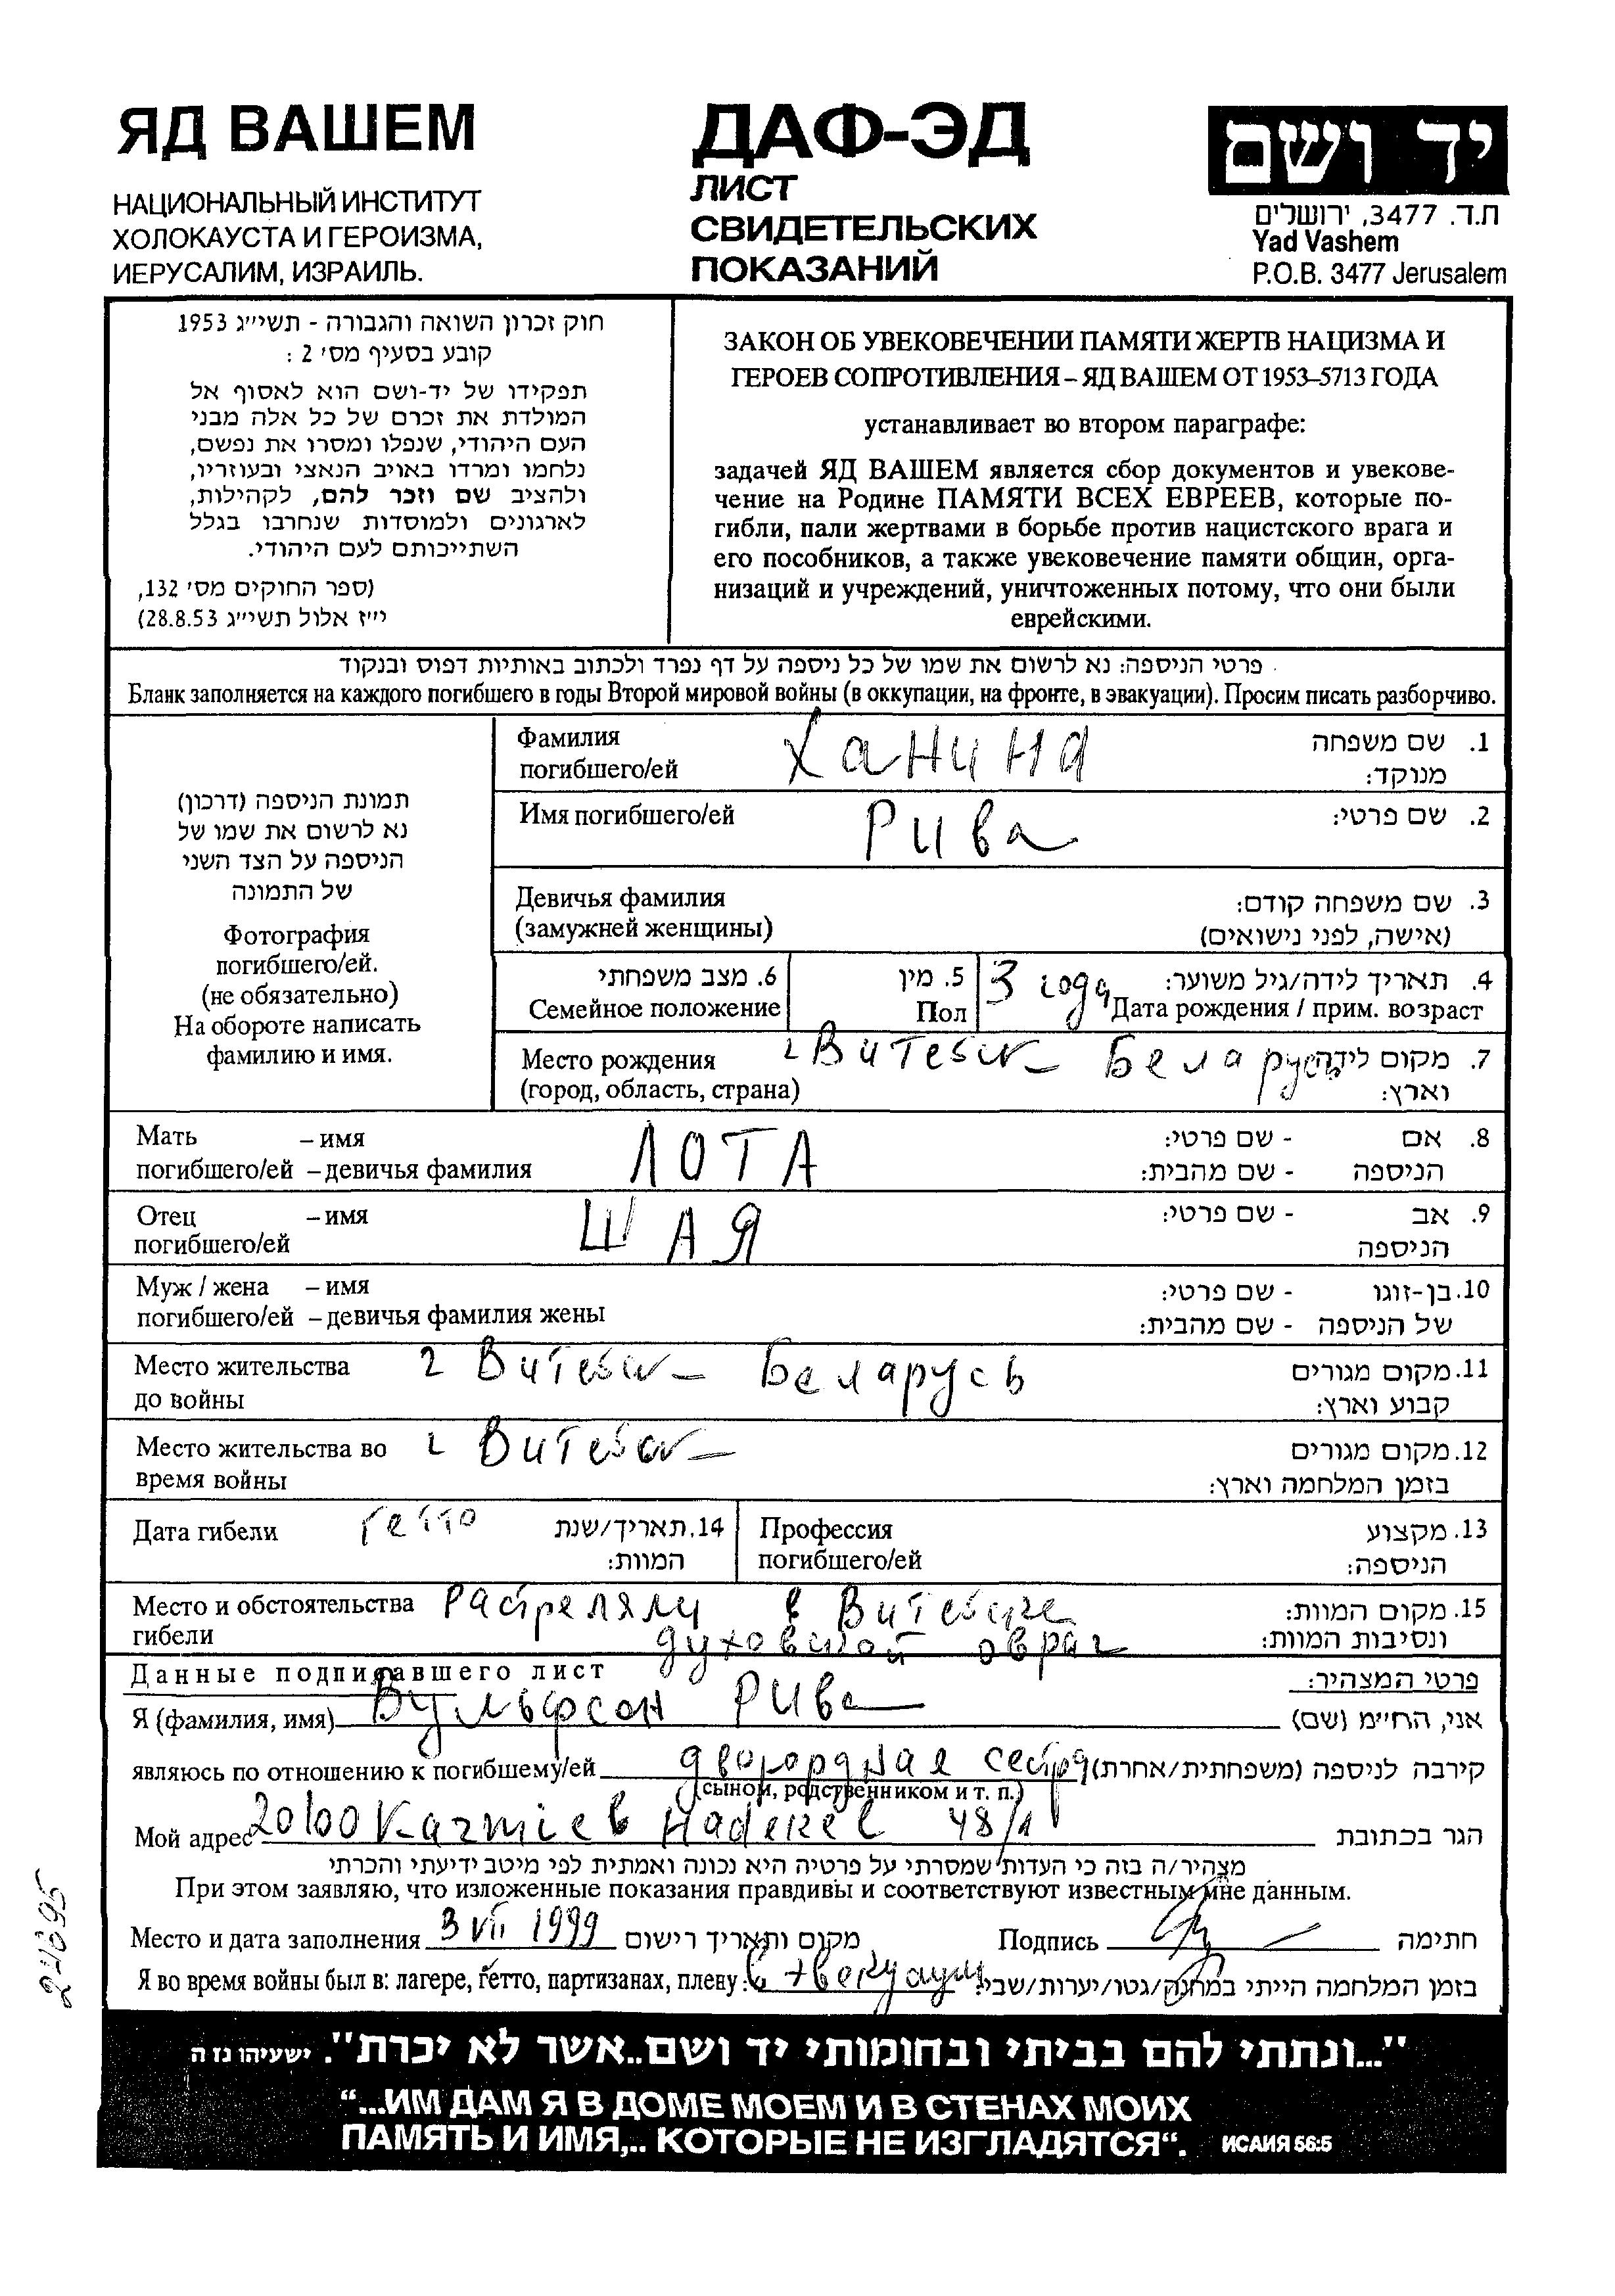 ЯД ВАШЕМ
НАЦИОНАЛЬНЫЙ ИНСТИТУТ
ХОЛОКАУСТА И ГЕРОИЗМА,
ИЕРУСАЛИМ, ИЗРАИЛЬ.
ДАФ-ЭД
ЛИСТ
СВИДЕТЕЛЬСКИХ
ПОКАЗАНИЙ
יד ושם
ת.ד. 3477, ירושלים
Yad Vashem
P.O.B. 3477 Jerusalem
חוק זכרון השואה והגבורה - תשי״ג 1953
קובע בסעיף מס׳ 2 :
תפקידו של יד-ושם הוא לאסוף אל
המולדת את זכרם של כל אלה מבני
העם היהודי, שנפלו ומסרו את נפשם,
נלחמו ומרדו באויב הנאצי ובעוזריו,
ולהציב שם וזכר להם, לקהילות,
לארגונים ולמוסדות שנחרבו בגלל
השתייכותם לעם היהודי.
(ספר החוקים מס׳ 132,
י״ז אלול תשי״ג 28.8.53)
ЗАКОН ОБ УВЕКОВЕЧЕНИИ ПАМЯТИ ЖЕРТВ НАЦИЗМА И
ГЕРОЕВ СОПРОТИВЛЕНИЯ – ЯД ВАШЕМ ОТ 1953–5713 ГОДА
устанавливает во втором параграфе:
задачей ЯД ВАШЕМ является сбор документов и увекове-
чение на Родине ПАМЯТИ ВСЕХ ЕВРЕЕВ, которые по-
гибли, пали жертвами в борьбе против нацистского врага и
его пособников, а также увековечение памяти общин, орга-
низаций и учреждений, уничтоженных потому, что они были
еврейскими.
פרטי הניספה: נא לרשום את שמו של כל ניספה על דף נפרד ולכתוב באותיות דפוס ובנקוד
Бланк заполняется на каждого погибшего в годы Второй мировой войны (в оккупации, на фронте, в эвакуации). Просим писать разборчиво.
תמונת הניספה (דרכון)
נא לרשום את שמו של
הניספה על הצד השני
של התמונה
Фотография
погибшего/ей.
(не обязательно)
На обороте написать
фамилию и имя.
Фамилия Ханина 1. שם משפחה
погибшего/ей מנוקד:
Имя погибшего/ей Рива 2. שם פרטי:
Девичья фамилия 3. שם משפחה קודם:
(замужней женщины) (אישה, לפני נישואים)
6. מצב משפחתי 5. מין 3 года 4. תאריך לידה/גיל משוער:
Семейное положение Пол Дата рождения / прим. возраст
Место рождения г Витебск Беларусь 7. מקום לידה
(город, область, страна) וארץ:
Мать – имя ЛОТА 8. אם - שם פרטי:
погибшего/ей – девичья фамилия הניספה - שם מהבית:
Отец – имя ШАЯ 9. אב - שם פרטי:
погибшего/ей הניספה
Муж / жена – имя 10. בן-זוגו - שם פרטי:
погибшего/ей – девичья фамилия жены של הניספה - שם מהבית:
Место жительства г Витебск Беларусь 11. מקום מגורים
до войны קבוע וארץ:
Место жительства во г Витебск 12. מקום מגורים
время войны בזמן המלחמה וארץ:
Дата гибели гетто 14. תאריך/שנת Профессия 13. מקצוע
המוות: погибшего/ей הניספה:
Место и обстоятельства Растреляли в Витебске 15. מקום המוות:
гибели духовской овраг ונסיבות המוות:
Данные подписавшего лист פרטי המצהיר:
Я (фамилия, имя) Вульфсон Рива אני, הח״מ (שם)
являюсь по отношению к погибшему/ей двоюрдная сестра קירבה לניספה (משפחתית/אחרת)
(сыном, родственником и т. п.)
Мой адрес 20100 Karmiev Hadekel 48/1 הגר בכתובת
מצהיר/ה בזה כי העדות שמסרתי על פרטיה היא נכונה ואמתית לפי מיטב ידיעתי והכרתי
При этом заявляю, что изложенные показания правдивы и соответствуют известным мне данным.
Место и дата заполнения 3 VII 1999 מקום ותאריך רישום Подпись חתימה
Я во время войны был в: лагере, гетто, партизанах, плену: בזמן המלחמה הייתי במחנה/גטו/יערות/שבי:
"...ונתתי להם בביתי ובחומותי יד ושם..אשר לא יכרת". ישעיהו נז ה
“...ИМ ДАМ Я В ДОМЕ МОЕМ И В СТЕНАХ МОИХ
ПАМЯТЬ И ИМЯ,.. КОТОРЫЕ НЕ ИЗГЛАДЯТСЯ“. ИСАИЯ 56:5